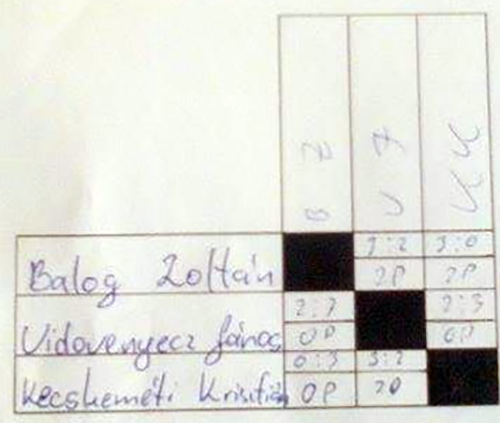 B Z V J KK
Balog Zoltán 3:2 3:0
2P 2P
Vidovenyecz János 2:3 2:3
0P 0P
Kecskeméti Krisztián 0:3 3:2
0P 2P